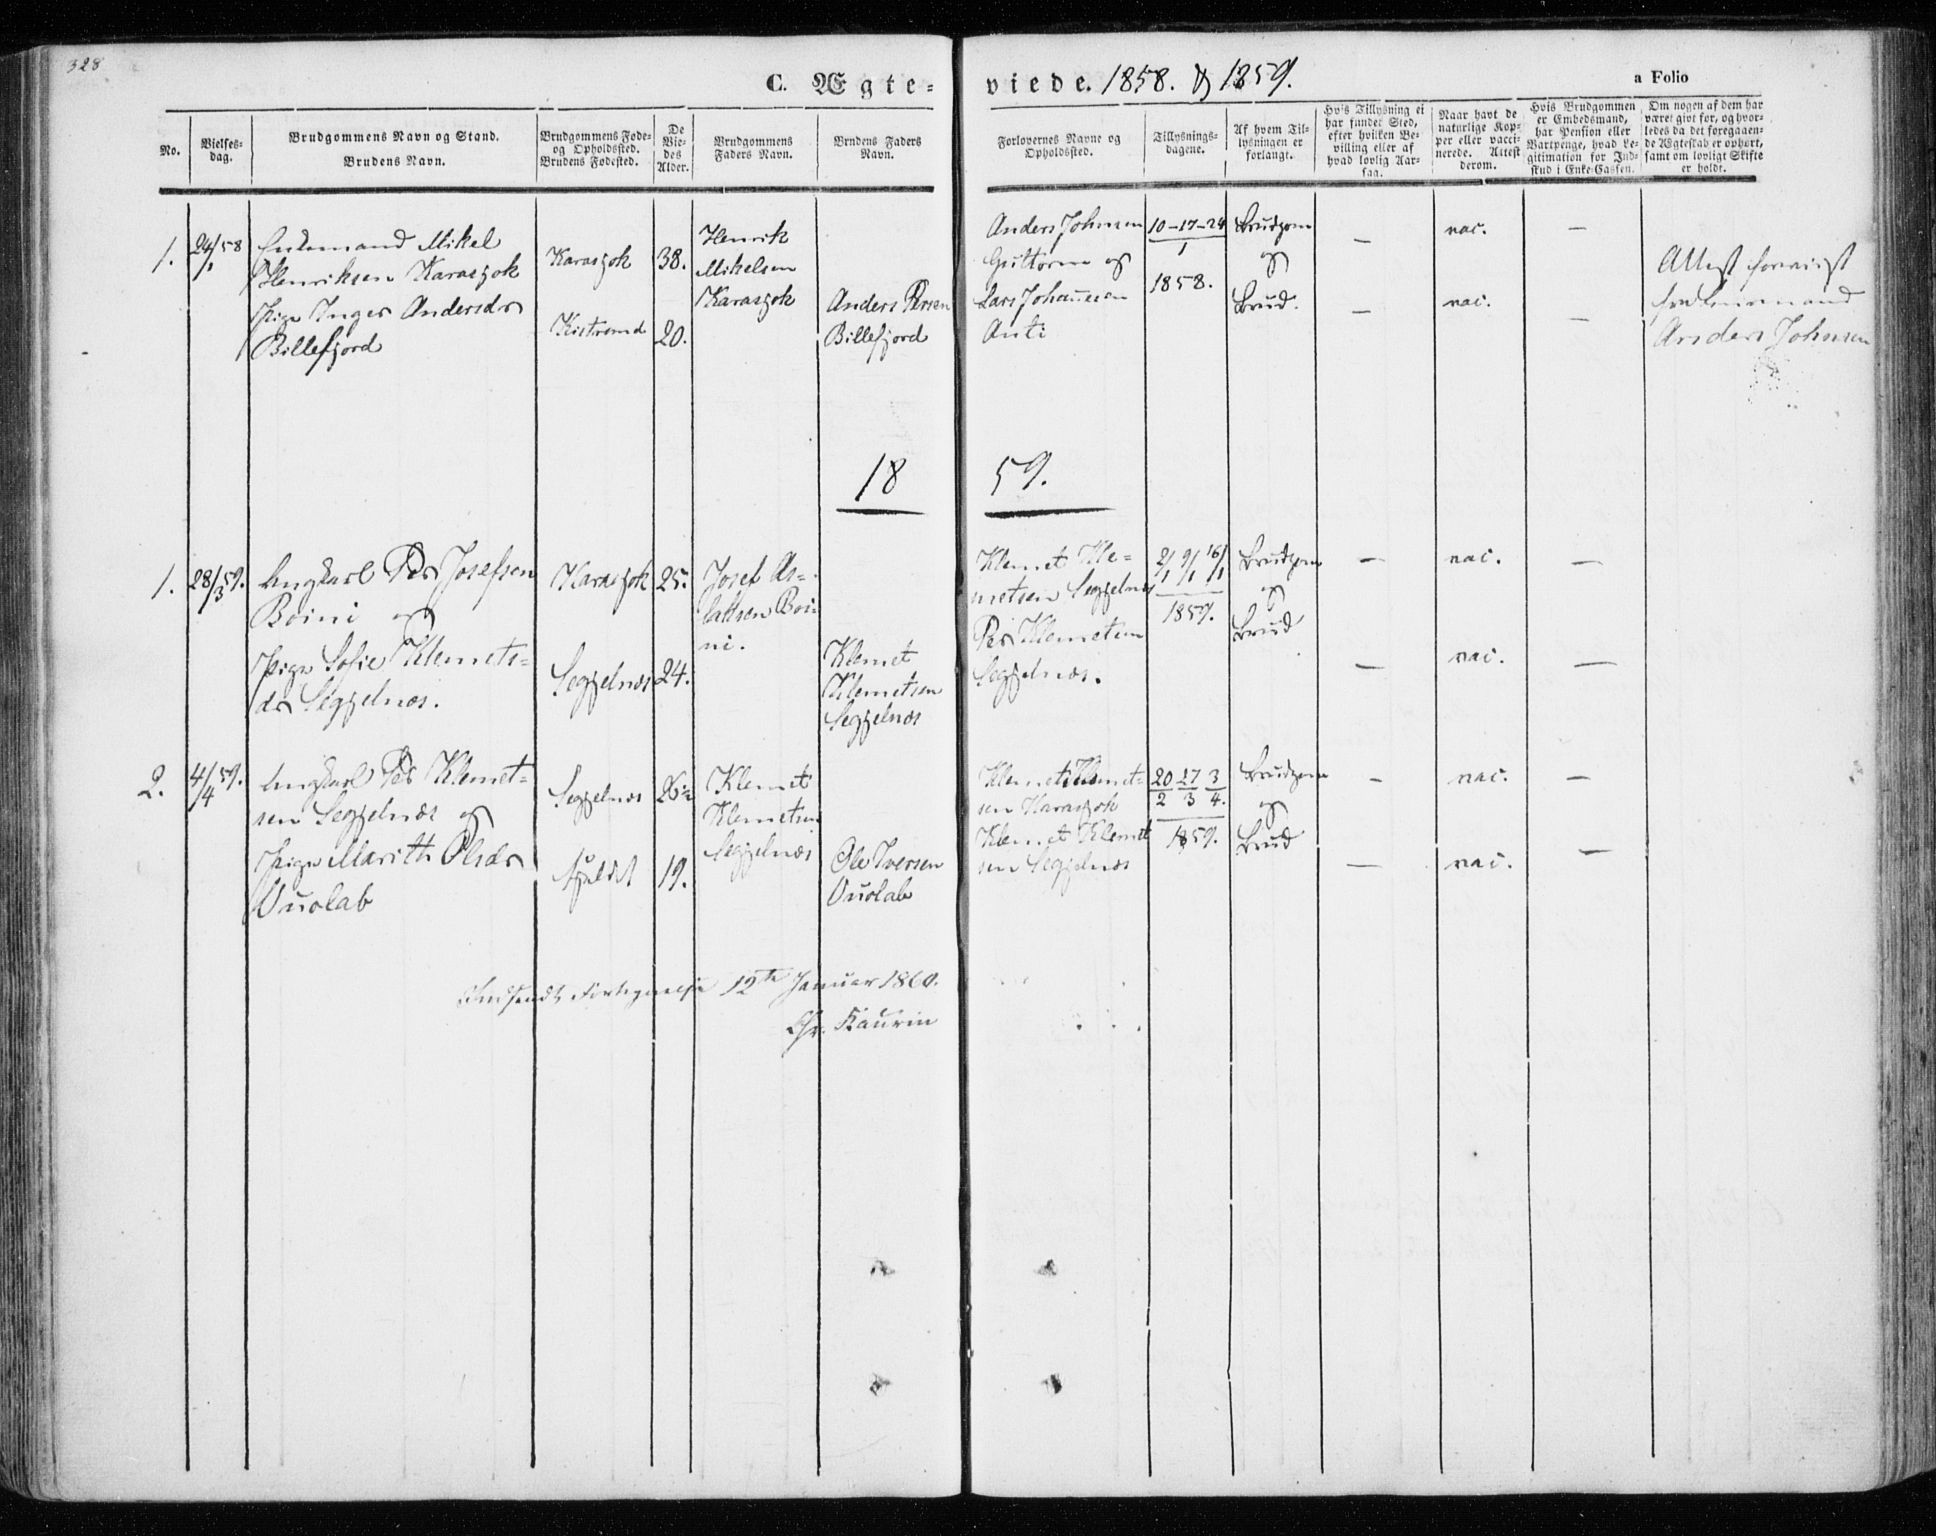 328
C. Ægte-
viede. 1858. & 1859.
a Folio
No.
Vielses-
dag.
Brudgommens Navn og Stand.
Brudens Navn.
Brudgommens Føde-
og Opholdssted.
Brudens Fødested.
De
Vie-
des
Alder.
Brudgommens
Faders Navn.
Brudens Faders
Navn.
Forlovernes Navne og
Opholdssted.
Tillysnings-
dagene.
Af hvem Til-
lysningen er
forlangt.
Hvis Tillysning ei
har fundet Sted,
efter hvilken Be-
villing eller af
hvad lovlig Aar-
sag.
Naar havt de
naturlige Kop-
per eller vacci-
nerede. Attest
derom.
Hvis Brudgommen
er Embedsmand,
har Pension eller
Vartpenge, hvad Le-
gitimation for Ind-
skud i Enke-Cassen.
Om nogen af dem har
været givt før, og hvor-
ledes da det foregaaen-
de Ægteskab er ophørt,
samt om lovligt Skifte
er holdt.
1.
24/1 58
Enkemand Mikel
Henriksen Karasjok
Pige Inger Andersdr
Billefjord
Karasjok
Kistrand
38.
20.
Henrik
Mikelsen
Karasjok
Anders Persen
Billefjord
Anders Johnsen
Guttorm og
Lars Johannesen
Anti
10-17-24
1
1858.
Brudgom
og
Brud.
—
—
vac.
vac.
—
—
Attest foreviist
fra
Anders Johnsen
18 59.
1.
28/3 59.
Ungkarl Per Josefsen
Boini og
Pige Sofie Klemets-
dr Seggelnæs.
Karasjok
Seggelnæs
25.
24.
Josef As-
laksen Boi-
ni.
Klemet
Klemetsen
Seggelnæs
Klemet Kle-
metsen Seggelnæs
Per Klemetsen
Seggelnæs.
2/1 9/1 16/1
1859.
Brudgom
og
Brud
—
—
vac.
vac.
—
—
2.
4/4 59.
Ungkarl Per Klemet-
sen Seggelnæs og
Pige Marith Olsdr
Vuolab
Seggelnæs
26½
19.
Klemet
Klemetsen
Seggelnæs
Ole Iversen
Vuolab
Klemet Klemet-
sen Karasjok
Klemet Klemet
sen Seggelnæs
20 27 3
2 3 4.
1859.
Brudgom
og
Brud
—
—
vac.
vac.
—
—
Indsendt Fortegnelse 12te Januar 1860.
Chr. Kaurin